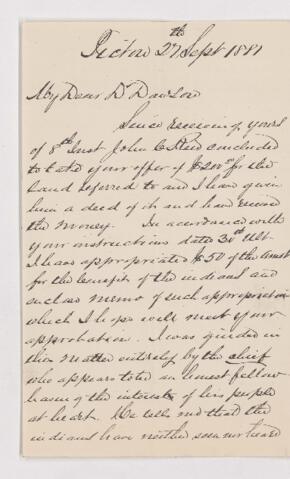 Pictou 27th Sept 1881
My Dear Dr Dawson
Since receiving yours
of 8th Inst John C. Reid concluded
to take your offer of $200 for the
land referred to and I have given
him a deed of it and have received
the money. In accordance with
your instructions dated 30th Ult.
I have appropriated $50 of the amt
for the benefit of the indians and
enclose memo of such appropriation
which I hope will meet your
approbation. I was guided in
this matter entirely by the chief
who appears to be an honest fellow
having the interests of his people
at heart. He tells me that the
indians have neither seen nor heard